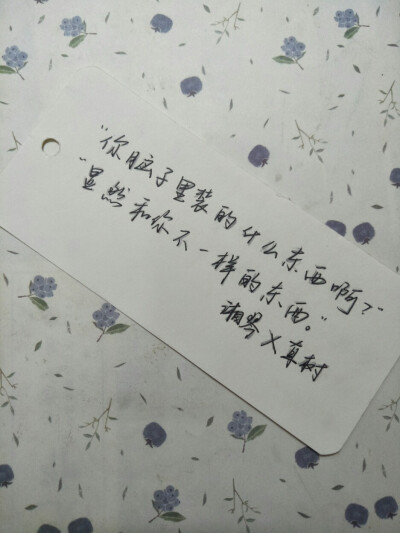 “你脑子里装的什么东西啊？”
“显然和你不一样的东西。”
湘琴X直树